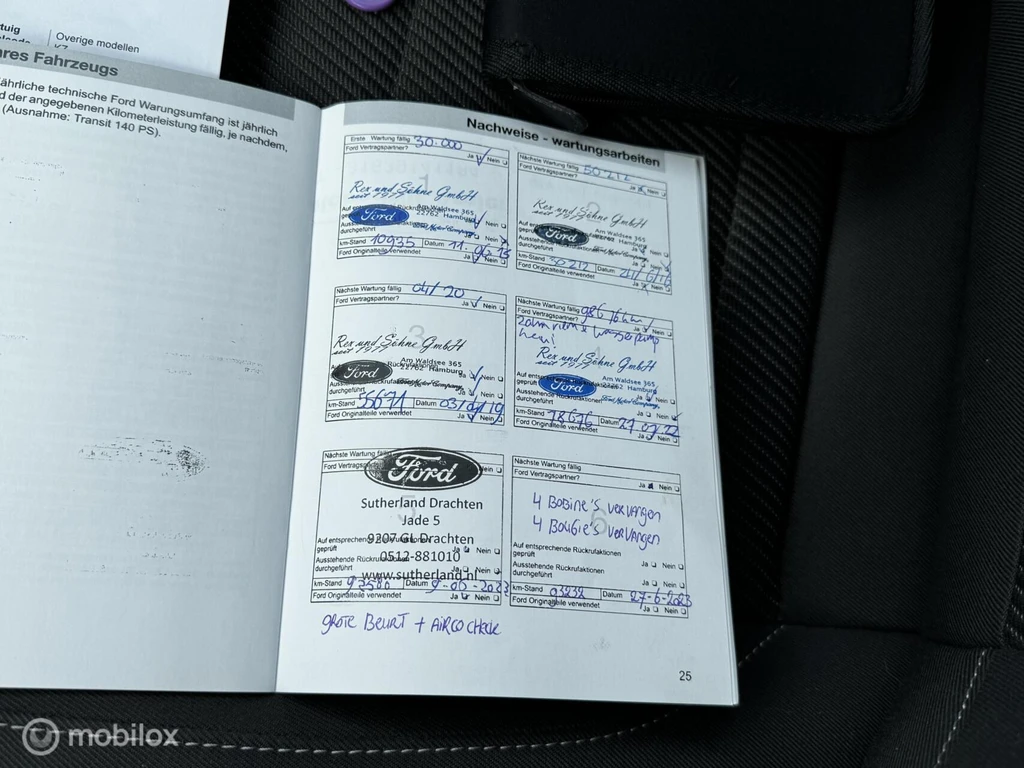 tuig
Overige modellen
hres Fahrzeugs
ährliche technische Ford Warungsumfang ist jährlich
d der angegebenen Kilometerleistung fällig, je nachdem,
(Ausnahme: Transit 140 PS).
Nachweise - wartungsarbeiten
Erste Wartung fällig 30.000
Ford Vertragspartner? Ja Nein
Rex und Söhne GmbH
seit 1977
Ford
Am Waldsee 365
22762 Hamburg
geprüft Ja Nein
durchgeführt Ja Nein
km-Stand 10935 Datum 11.06.15
Ford Originalteile verwendet Ja Nein
Nächste Wartung fällig 50212
Ford Vertragspartner? Ja Nein
Rex und Söhne GmbH
seit 1977
Ford
Am Waldsee 365
22762 Hamburg
geprüft Ja Nein
durchgeführt Ja Nein
km-Stand 30212 Datum
Ford Originalteile verwendet Ja Nein
Nächste Wartung fällig 04/20
Ford Vertragspartner? Ja Nein
Rex und Söhne GmbH
seit 1977
Ford
Am Waldsee 365
22762 Hamburg
geprüft Ja Nein
durchgeführt Ja Nein
km-Stand 55671 Datum 03/04/19
Ford Originalteile verwendet Ja Nein
Nächste Wartung fällig 98676 km
Ford Vertragspartner? Ja Nein
Zahnriem & Wasserpump
neu!
Rex und Söhne GmbH
seit 1977
Ford
Am Waldsee 365
22762 Hamburg
geprüft Ja Nein
Ausstehende Rückrufaktionen
durchgeführt Ja Nein
km-Stand 78676 Datum 27.07.22
Ford Originalteile verwendet Ja Nein
Nächste Wartung
Ford
Sutherland Drachten
Jade 5
9207 GL Drachten
0512-881010
www.sutherland.nl
Auf entsprechende
geprüft Ja Nein
Ausstehende Rückrufaktionen
durchgeführt Ja Nein
km-Stand Datum 9-06-2023
Ford Originalteile verwendet Ja Nein
GROTE BEURT + AIRCO CHECK
Nächste Wartung fällig
Ford Vertragspartner?
Ja Nein
4 BOBINE'S VERVANGEN
4 BOUGIE'S VERVANGEN
Auf entsprechende Rückrufaktionen
geprüft Ja Nein
Ausstehende Rückrufaktionen
durchgeführt Ja Nein
km-Stand 93232 Datum 27-6-2023
Ford Originalteile verwendet Ja Nein
25
mobilox